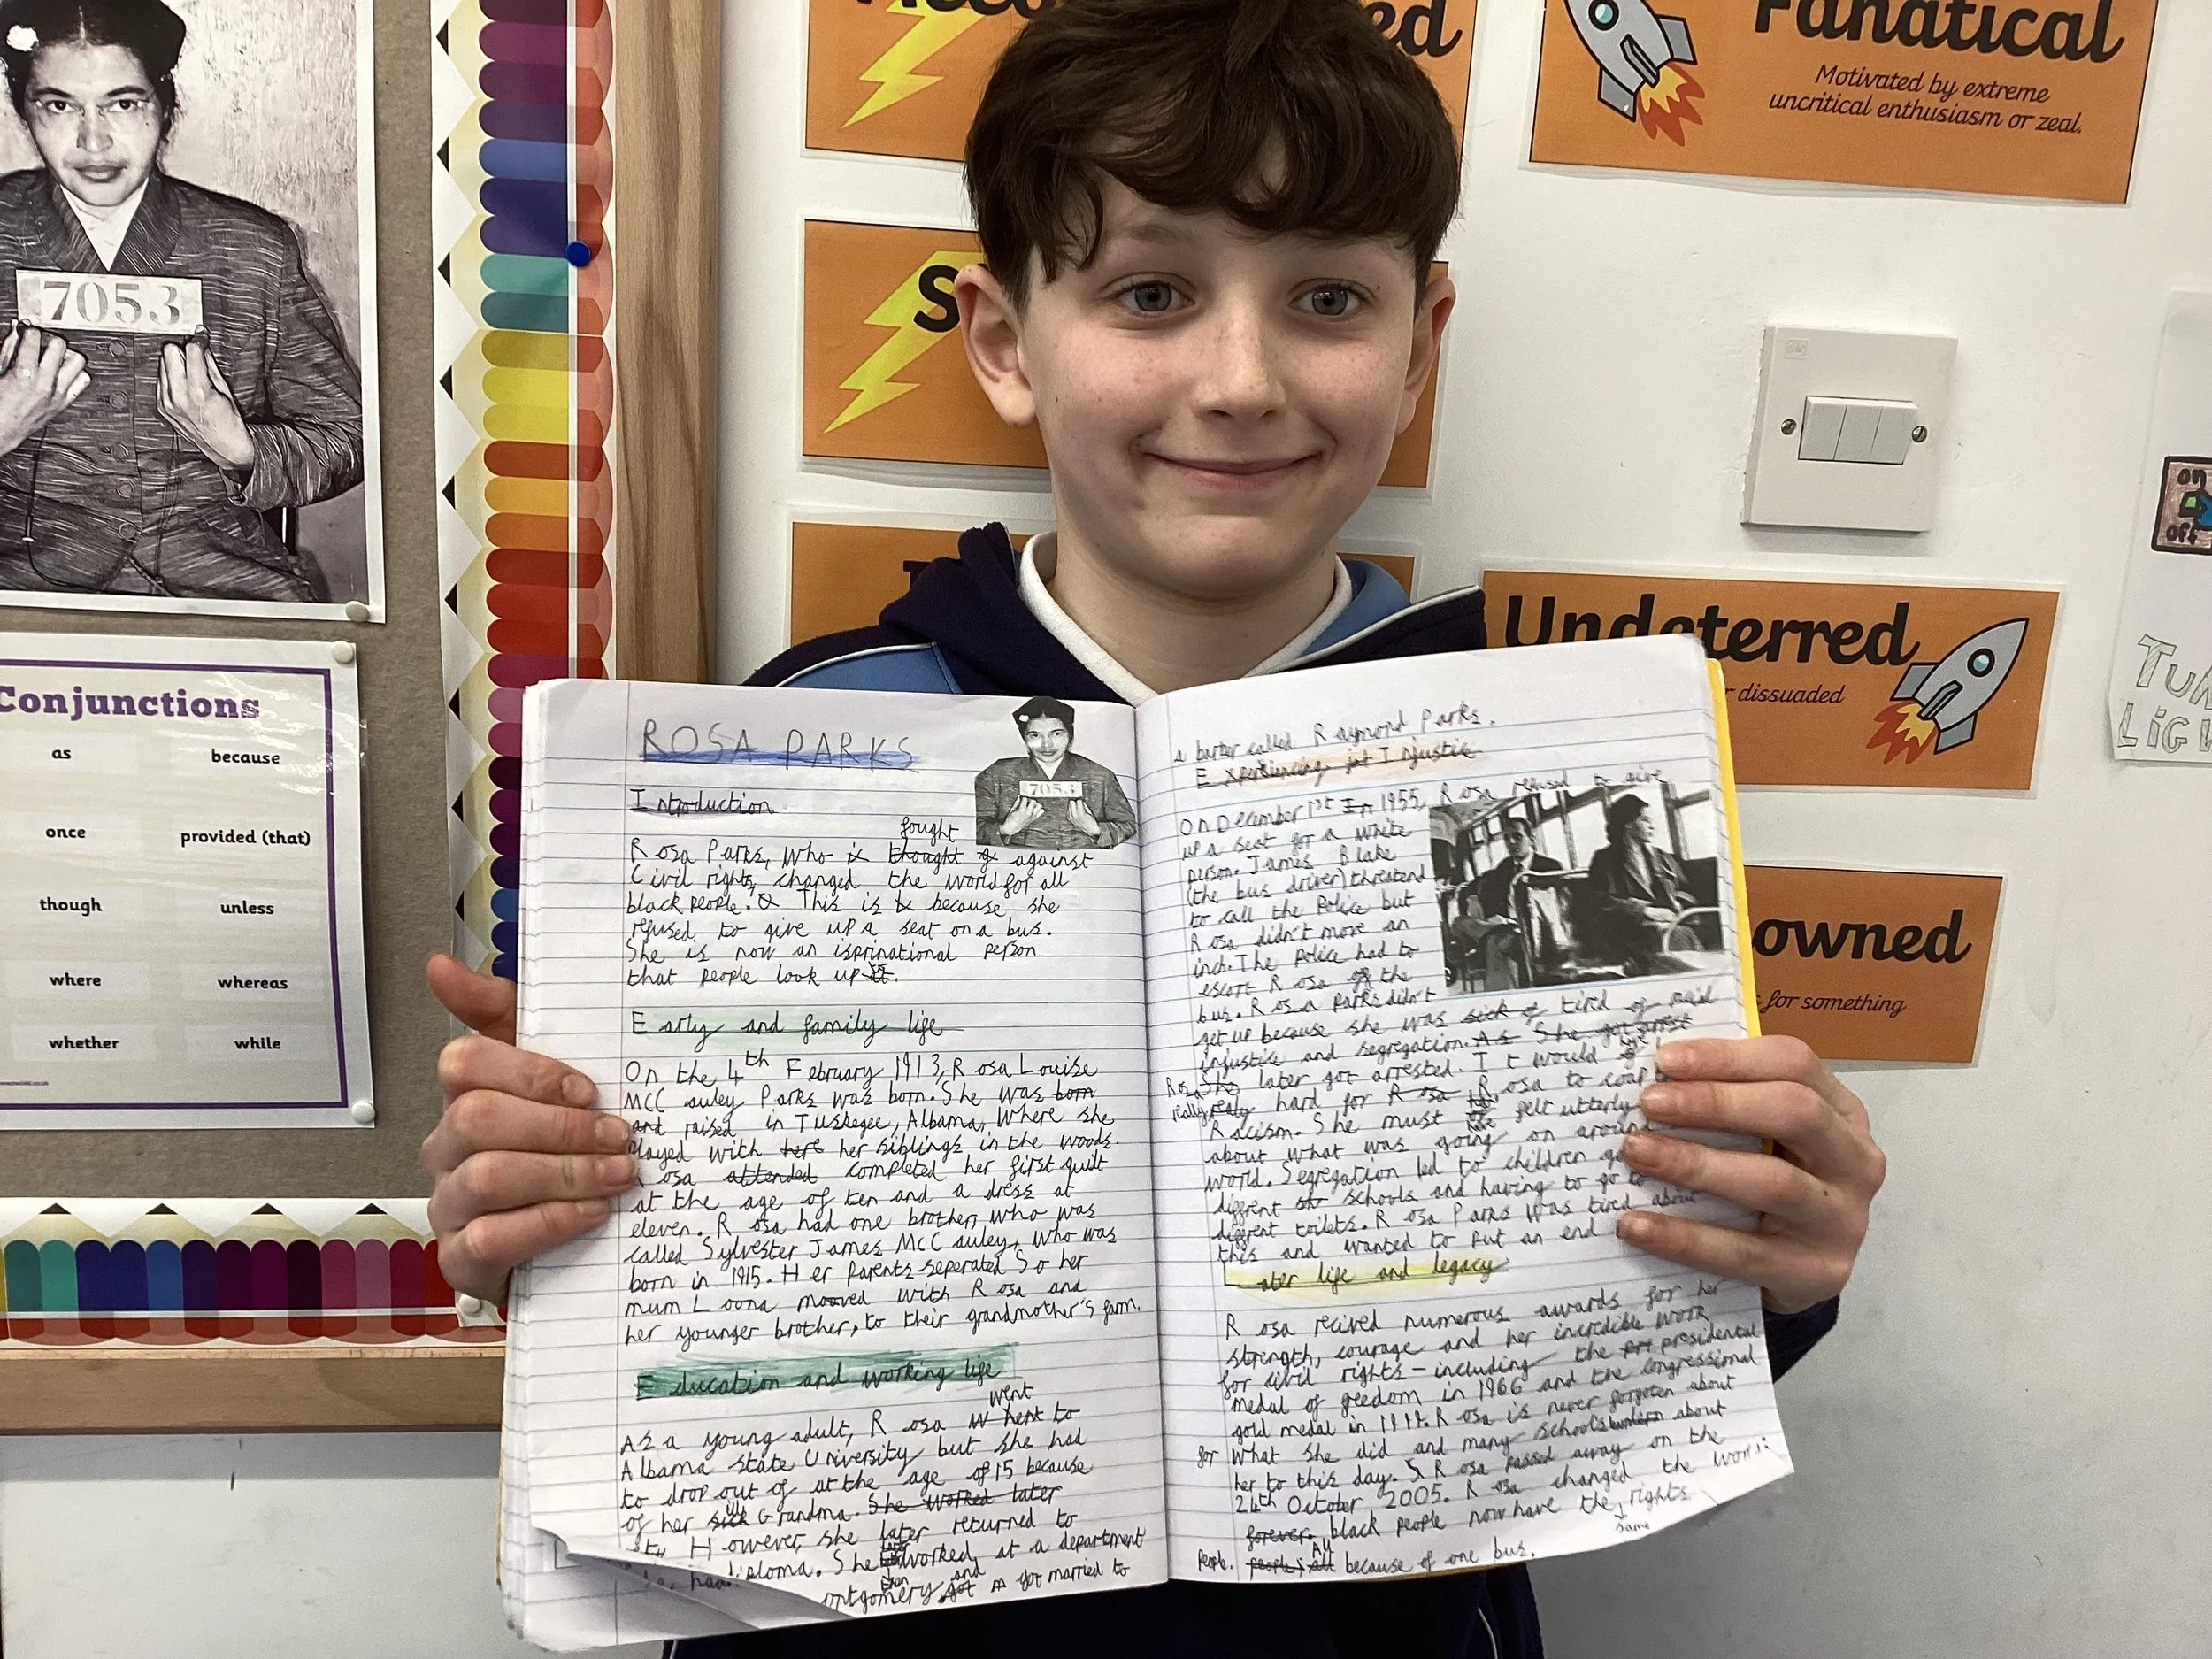 7053
Conjunctions
as
because
once
provided (that)
though
unless
where
whereas
whether
while
ed
Fanatical
Motivated by extreme
uncritical enthusiasm or zeal.
S
Undeterred
r dissuaded
owned
for something
on
off
ROSA PARKS
7053
Introduction
fought
Rosa Parks, who is thought of against
Civil rights, changed the world for all
black people. This is because she
refused to give up a seat on a bus.
She is now an isprinational person
that people look up
Early and family life
On the 4th February 1913, Rosa Louise
MCCauley Parks was born. She was born
and raised in Tuskegee, Albama, Where she
played with her siblings in the woods.
Rosa attended completed her first quilt
at the age of ten and a dress at
eleven. Rosa had one brother, who was
called Sylvester James McCauley, who was
born in 1915. Her Parents seperated So her
mum Loona mooved with Rosa and
her younger brother, to their grandmother's farm.
Education and working life
went
As a young adult, Rosa to
Albama state University but she had
to drop out of at the age of 15 because
of her sick ill Grandma. She worked later
However, she later returned to
diploma. She worked at a department
and
ontgomery. got got married to
a barber called Raymond Parks.
Experiencing Injustic
On December 1st In 1955, Rosa refused to give
up a seat for a white
person. James Blake
(the bus driver) threatend
to call the Police but
Rosa didn't move an
inch. The Police had to
escort Rosa of the
bus. Rosa Parks didn't
get up because she was sick of tired of
injustice and segregation. As She got arrest
Rosa She later got arrested. It would
really realy hard for Rosa Rosa to
Racism. She must have felt utterly
about what was going on around
world. Segregation led to children
different schools and having to go to
different toilets. Rosa Parks was tired about
this and wanted to put an end
Later life and legacy
Rosa recived numerous awards for her
strength, courage and her incredible work
for civil rights - including the presidental
medal of freedom in 1966 and the congressional
gold medal in Rosa is never forgoten about
for What she did and many schools about
her to this day. Rosa passed away on the
24th October 2005. Rosa changed the
forever. black people now have the rights
same
People. people; all All because of one bus.